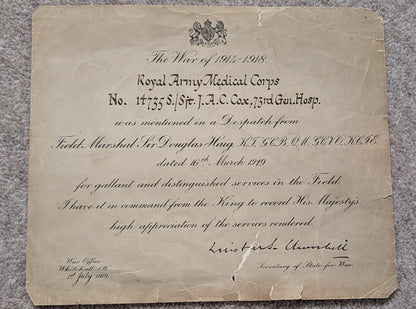 The War of 1914-1918.
Royal Army Medical Corps
No. 14735 S./Sjt. J.A.C. Cox, 73rd Gen. Hosp.
was mentioned in a Despatch from
Field Marshal Sir Douglas Haig, K.T. G.C.B. O.M. G.C.V.O. K.C.I.E.
dated 16th March 1919
for gallant and distinguished services in the Field.
I have it in command from the King to record His Majesty's
high appreciation of the services rendered.
Winston S. Churchill
Secretary of State for War.
War Office
Whitehall, S.W.
1st July 1919.